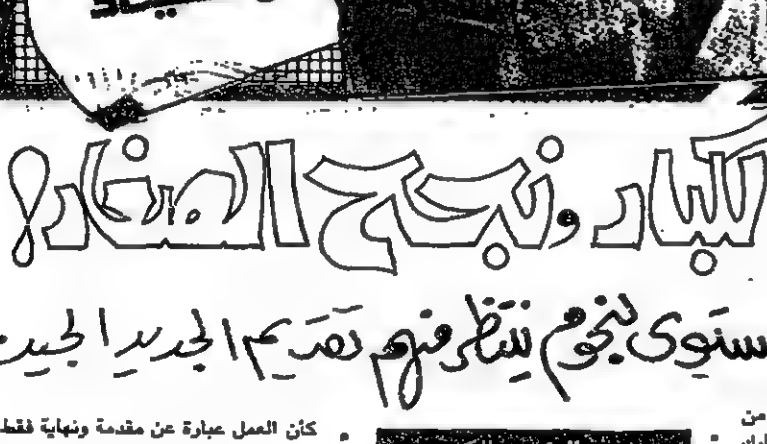 كبار ونجح الصغار!
مستوى لنجوم ننتظر منهم تقديم الجديد الجيد
من
كأن العمل عبارة عن مقدمة ونهاية فقط